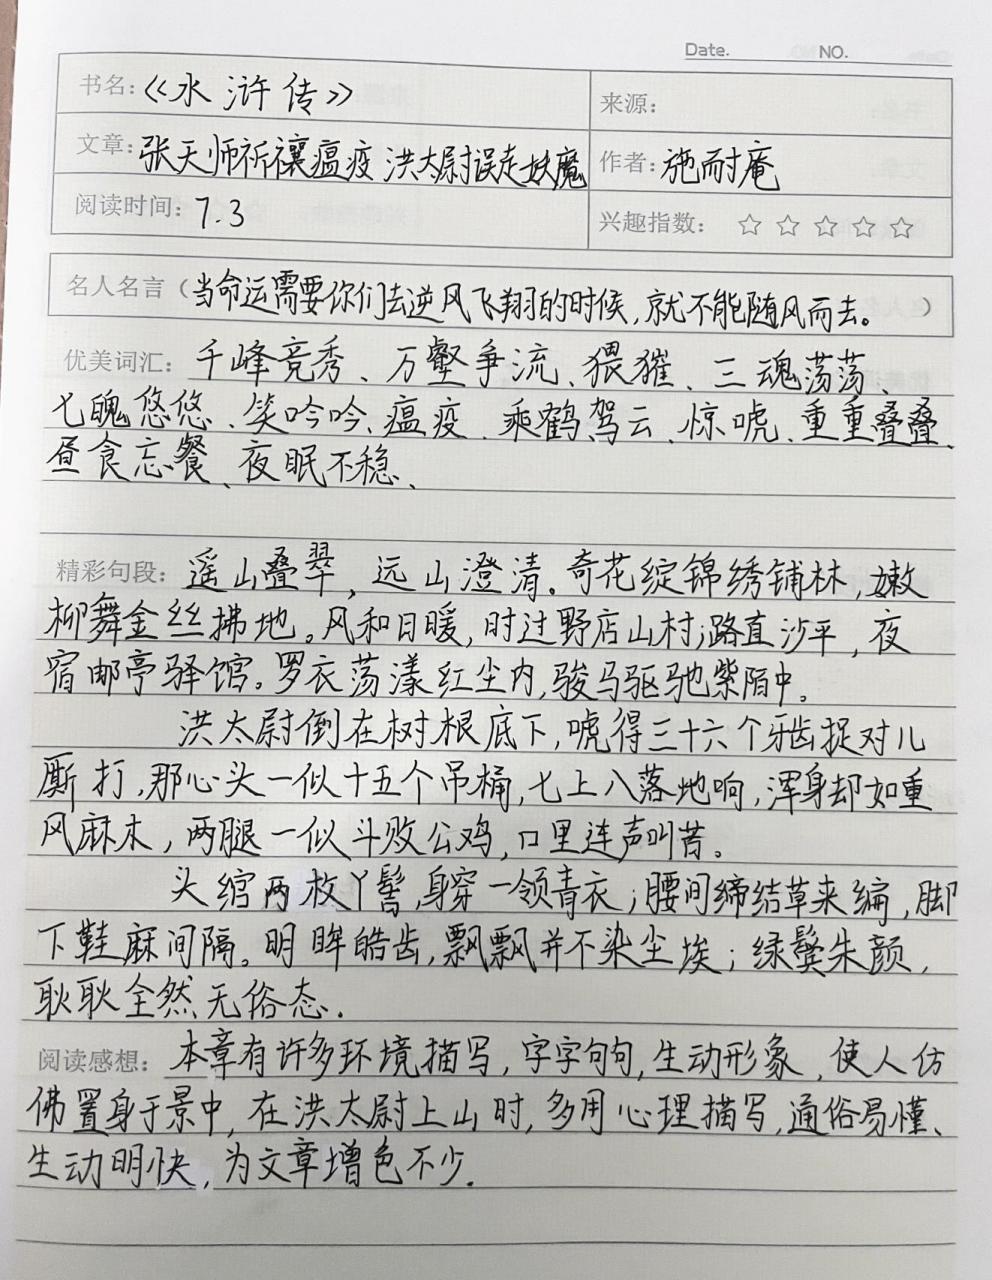 Date. NO.
书名：《水浒传》 来源：
文章：张天师祈禳瘟疫 洪太尉误走妖魔 作者：施耐庵
阅读时间：7.3 兴趣指数：☆☆☆☆☆
名人名言（当命运需要你们去逆风飞翔的时候，就不能随风而去。）
优美词汇：千峰竞秀、万壑争流、猥獕、三魂荡荡、
七魄悠悠、笑吟吟、瘟疫、乘鹤驾云、惊唬、重重叠叠、
昼食忘餐、夜眠不稳、
精彩句段：遥山叠翠，远山澄清。奇花绽锦绣铺林，嫩
柳舞金丝拂地。风和日暖，时过野店山村；路直沙平，夜
宿邮亭驿馆。罗衣荡漾红尘内，骏马驱驰紫陌中。
洪太尉倒在树根底下，唬得三十六个牙齿捉对儿
厮打，那心头一似十五个吊桶，七上八落地响，浑身却如重
风麻木，两腿一似斗败公鸡，口里连声叫苦。
头绾两枚丫髻，身穿一领青衣；腰间绦结草来编，脚
下鞋麻间隔。明眸皓齿，飘飘并不染尘埃；绿鬓朱颜，
耿耿全然无俗态.
阅读感想：本章有许多环境描写，字字句句，生动形象，使人仿
佛置身于景中，在洪太尉上山时，多用心理描写，通俗易懂、
生动明快，为文章增色不少.